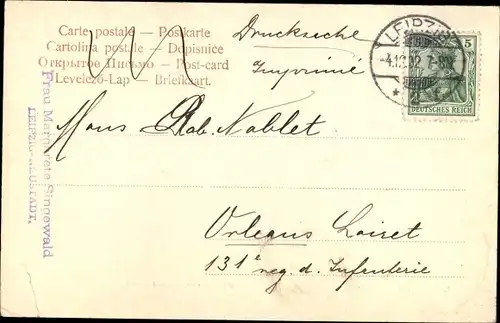 Carte postale — Postkarte
Cartolina postale — Dopisnice
Открытое Письмо — Post-card
Levelező-Lap — Briefkaart.
Drucksache
Imprimé
LEIPZIG
-4.10.02.7-8N.
5
DEUTSCHES REICH
Frau Margarete Singewald
LEIPZIG-NEUSTADT.
Mons Rob. Noblet
Orleans Loiret
131e reg. d. Infanterie